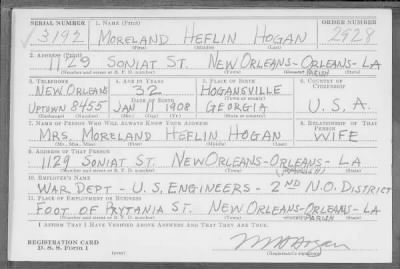 SERIAL NUMBER 1. NAME (Print) ORDER NUMBER
3192 MORELAND HEFLIN HOGAN 2928
(First) (Middle) (Last)
2. ADDRESS (Print)
1129 SONIAT ST. NEW ORLEANS-ORLEANS-LA
(Number and street or R. F. D. number) (Town) (County) PARISH (State)
3. TELEPHONE 4. AGE IN YEARS 5. PLACE OF BIRTH 6. COUNTRY OF CITIZENSHIP
NEW ORLEANS 32 HOGANSVILLE
DATE OF BIRTH (Town or county)
UPTOWN 8455 JAN 11 1908 GEORGIA U.S.A.
(Exchange) (Number) (Mo.) (Day) (Yr.) (State or country)
7. NAME OF PERSON WHO WILL ALWAYS KNOW YOUR ADDRESS 8. RELATIONSHIP OF THAT PERSON
MRS. MORELAND HEFLIN HOGAN WIFE
(Mr., Mrs., Miss) (First) (Middle) (Last)
9. ADDRESS OF THAT PERSON
1129 SONIAT ST. NEW ORLEANS-ORLEANS-LA
(Number and street or R. F. D. number) (Town) (County) (PARISH) (State)
10. EMPLOYER'S NAME
WAR DEPT - U.S. ENGINEERS - 2ND N.O. DISTRICT
11. PLACE OF EMPLOYMENT OR BUSINESS
FOOT OF PRYTANIA ST. NEW ORLEANS-ORLEANS-LA
(Number and street or R. F. D. number) (Town) (County) PARISH (State)
I AFFIRM THAT I HAVE VERIFIED ABOVE ANSWERS AND THAT THEY ARE TRUE.
REGISTRATION CARD
D. S. S. Form 1